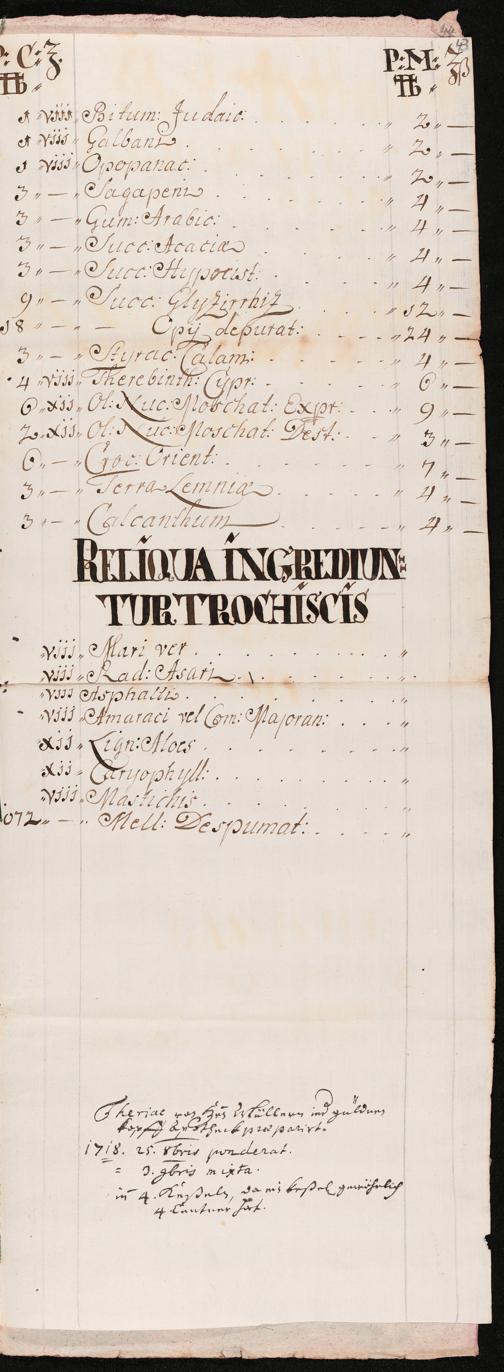 P: C: ʒ. P: M: ʒβ
℔ „ ℔ „
1 viij „ Bitum: Judaic: „ 2 „ —
1 viij „ Galbani „ 2 „ —
1 viij „ Opopanac: „ 2 „ —
3 „ — „ Sagapeni „ 4 „ —
3 „ — „ Gum: Arabic: „ 4 „ —
3 „ — „ Succ: Acaciæ „ 4 „ —
3 „ — „ Succ: Hypocist: „ 4 „ —
9 „ — „ Succ: Glyzirrhiz „ 12 „ —
18 „ — „ — Opij depurat: „ 24 „ —
3 „ — „ Styrac: Calam: „ 4 „ —
4 „ viij „ Therebinth: Cypr: „ 6 „ —
6 „ xij „ Ol: Nuc: Moschat: Expr: „ 9 „ —
2 „ xij „ Ol: Nuc: Moschat: Dest: „ 3 „ —
6 „ — „ Croc: Orient: „ 7 „ —
3 „ — „ Terra Lemnia „ 4 „ —
3 „ — „ Calcanthum „ 4 „ —
RELIQUA INGREDIUN:
TUR TROCHISCIS
viij „ Mari ver „
viij „ Rad: Asari „
viij „ Asphalti „
viij „ Amaraci vel Com: Majoran: „
xij „ Lign: Aloes „
xij „ Caryophyll: „
viij „ Mastichis „
072 „ — „ Mell: Despumat: „
Theriac von güldnen
præparirt.
1718. 25. 8bris ponderat.
= 3. 9bris mixta.
in 4. Keßeln, da ein keßel gewöhnlich
4 Centner